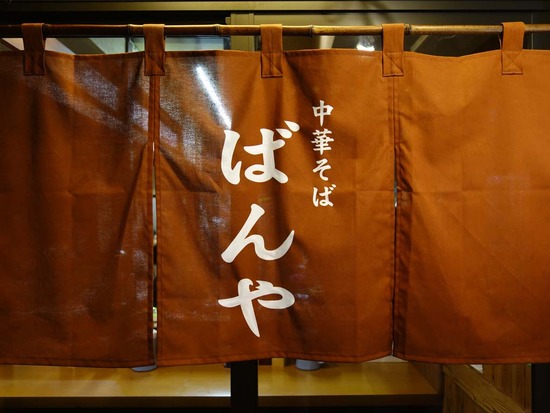 中華そば
ばんや